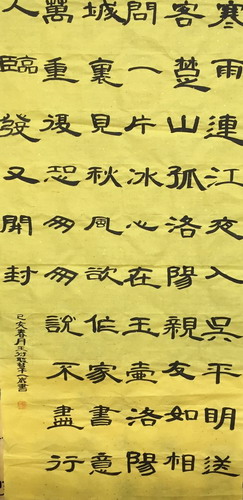 寒雨連江夜入吳平明送
客楚山孤洛陽親友如相
問一片冰心在玉壺洛陽
城裏見秋風欲作家書意
萬重復恐匆匆說不盡行
人臨發又開封
己亥春月王書